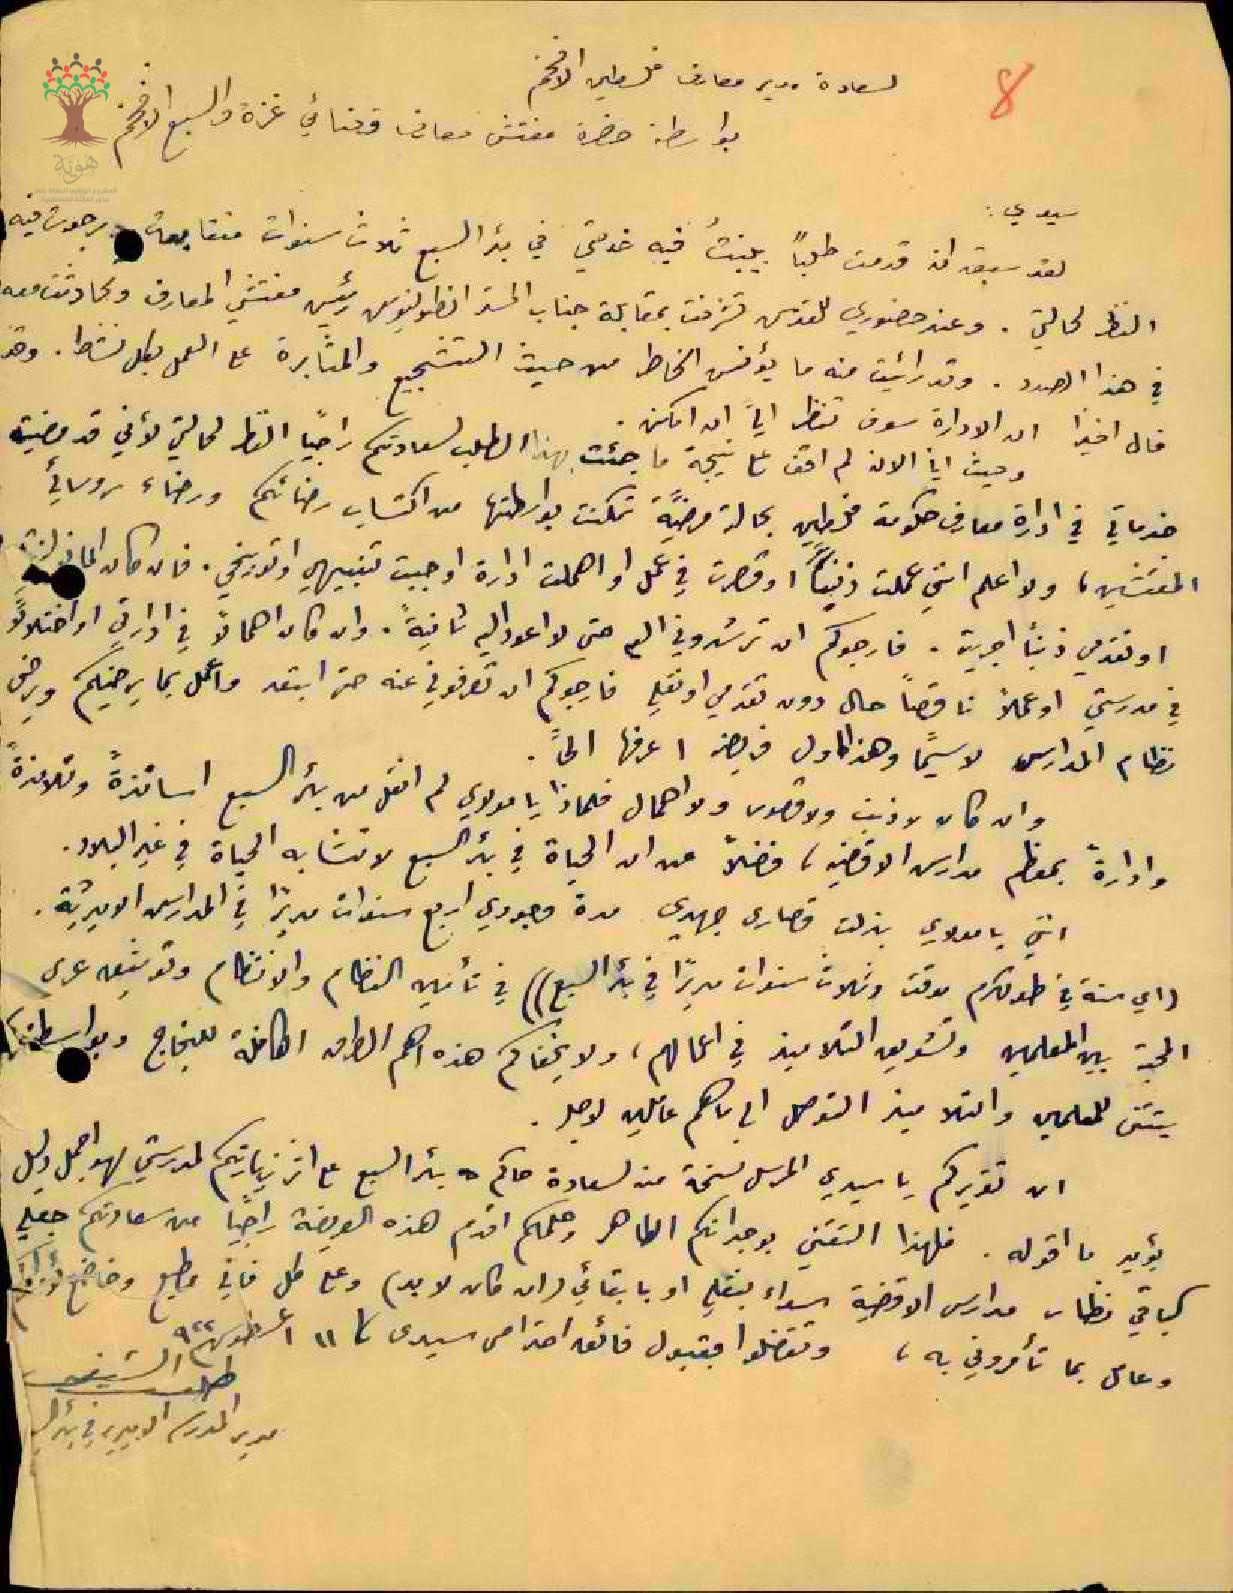 8
لسعادة مدير معارف فلسطين الافخم
بواسطة حضرة مفتش معارف قضائي غزة والسبع الافخم
هوية
سيدي :
لقد سبق ان قدمت طلباً بينت فيه خدمتي في بئر السبع ثلاث سنوات متتابعات رجوت فيه
النظر لحالتي . وعند حضوري للقدس تشرفت بمقابلة جناب المستر انطونيوس رئيس مفتشي المعارف وتحادثت معه
في هذا الصدد . وقد رأيت منه ما يؤنس الخاطر من حيث التشجيع والمثابرة على العمل بكل نشاط . وقد
قال اخيرا ان الادارة سوف تنظر ان امكن .
وحيث اني الان لم اقف على نتيجة ما جئت بهذا الطلب لسعادتكم راجياً النظر لحالتي لأني قد مضيت
خدماتي في ادارة معارف حكومة فلسطين بحالة مرضيّة تمكنت بواسطتها من اكتساب رضائكم ورضاء رؤسائي
المفتشين ، ولا اعلم انني عملت ذنباً او قصرت في عمل او اهملت ادارة اوجبت تنبيهي او توبيخي . فان كان المانع
او تقدمي ذنباً اجريته . فارجوكم ان ترشدوني اليه حتى لا اعود اليه ثانيةً . وان كان اهمالاً في ادارتي او اختلالاً
في مدرستي او عملاً ناقصاً حال دون تقدمي او نقلي فارجوكم ان تعرفوني عنه حتى ابتعد واعمل بما يرضيكم ويرضي
نظام المدارس لاسيّما وهذا اول فريضة اعرفها
وان كان لا ذنب ولا قصور ولا اهمال فلماذا يا مولاي لم انقل من بئر السبع اساتذةً وتلامذةً
وادارةً بمعظم مدارس الاقضية ، فضلاً عن ان الحياة في بئر السبع لا تشابه الحياة في غير البلاد .
انني يا مولاي بذلت قصارى جهدي مدة وجودي اربع سنوات مديرًا في المدارس الاميرية .
(اي سنة في طولكرم موقت وثلاث سنوات مديرًا في بئر السبع)) في تأمين النظام والانتظام وتوثيق عرى
المحبة بين المعلمين وتشويق التلاميذ في اعمالهم ، ولا يخفاكم هذه اهم الطرق الكافلة للنجاح وبواسطتها
يتسنى للمعلمين والتلاميذ التوصل الى ما هم عاملين لاجله .
ان تقريركم يا سيدي المرسل نسخة منه لسعادة حاكم بئر السبع على اثر زيارتكم لمدرستي لهو اجمل دليل
يؤيد ما اقوله . فلهذا التقني بوجدانكم الطاهر وحلمكم اقدم هذه العريضة راجياً من سعادتكم جعلي
كباقي نظار مدارس الاقضية سواء بنقلي او بابقائي (ان كان لا بد) وعلى كل فاني مطيع وخاضع
وعامل بما تأمروني به ، وتفضلوا بقبول فائق احترامي سيدي ١١ اغسطوس ٩٢٢
مدير المدرسة الاميرية في بئر